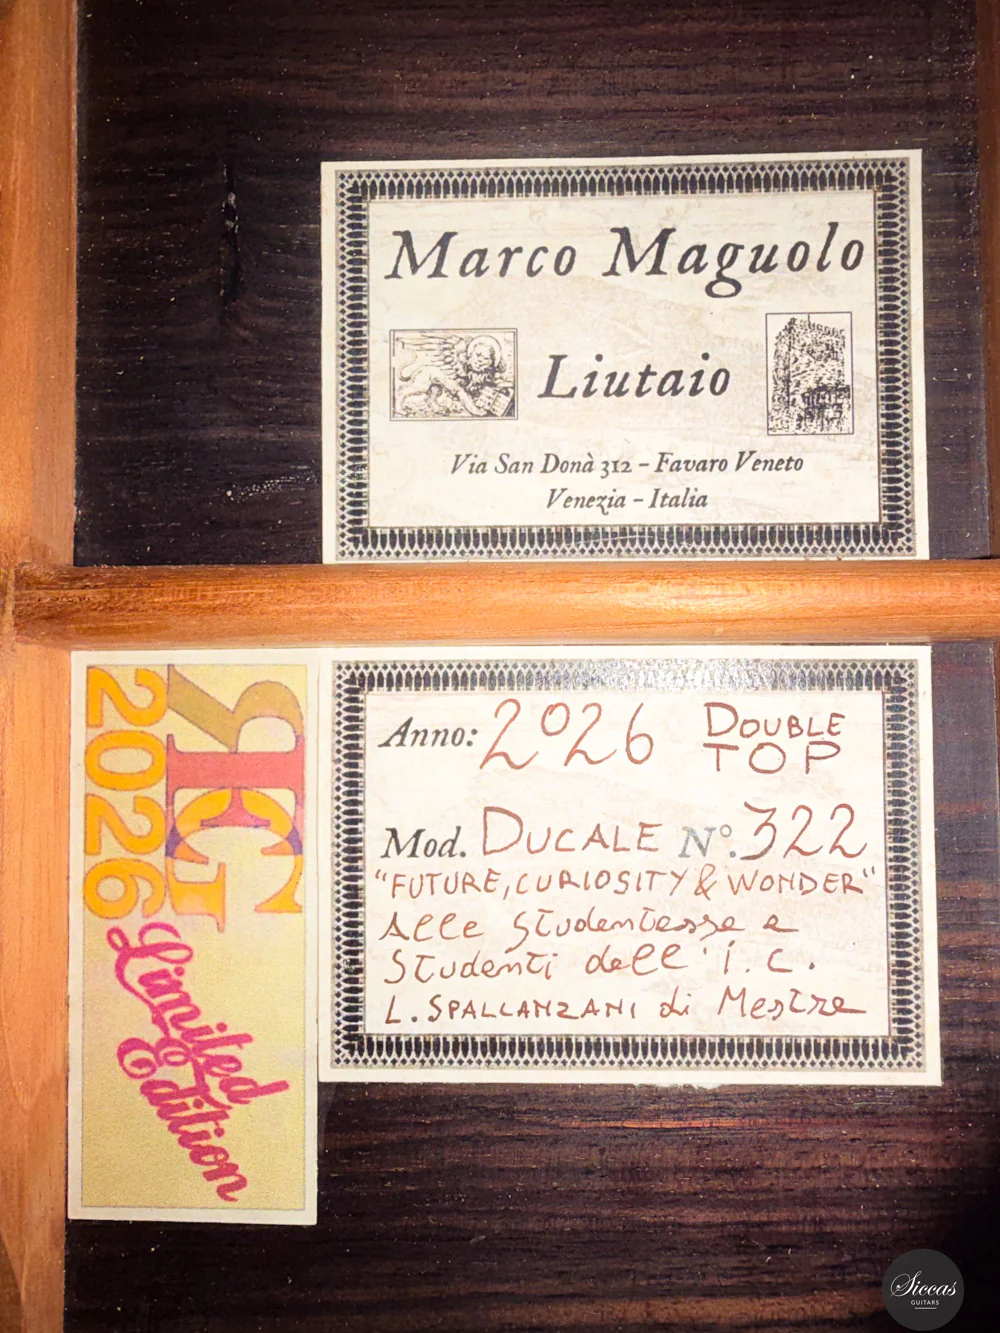 Marco Maguolo
Liutaio
Via San Donà 312 – Favaro Veneto
Venezia – Italia
Anno: 2026 DOUBLE
TOP
Mod. DUCALE N°. 322
"FUTURE, CURIOSITY & WONDER"
Alle Studentesse e
Studenti dell'I.C.
L. SPALLANZANI di Mestre
2026
Limited
Edition
Siccas
GUITARS